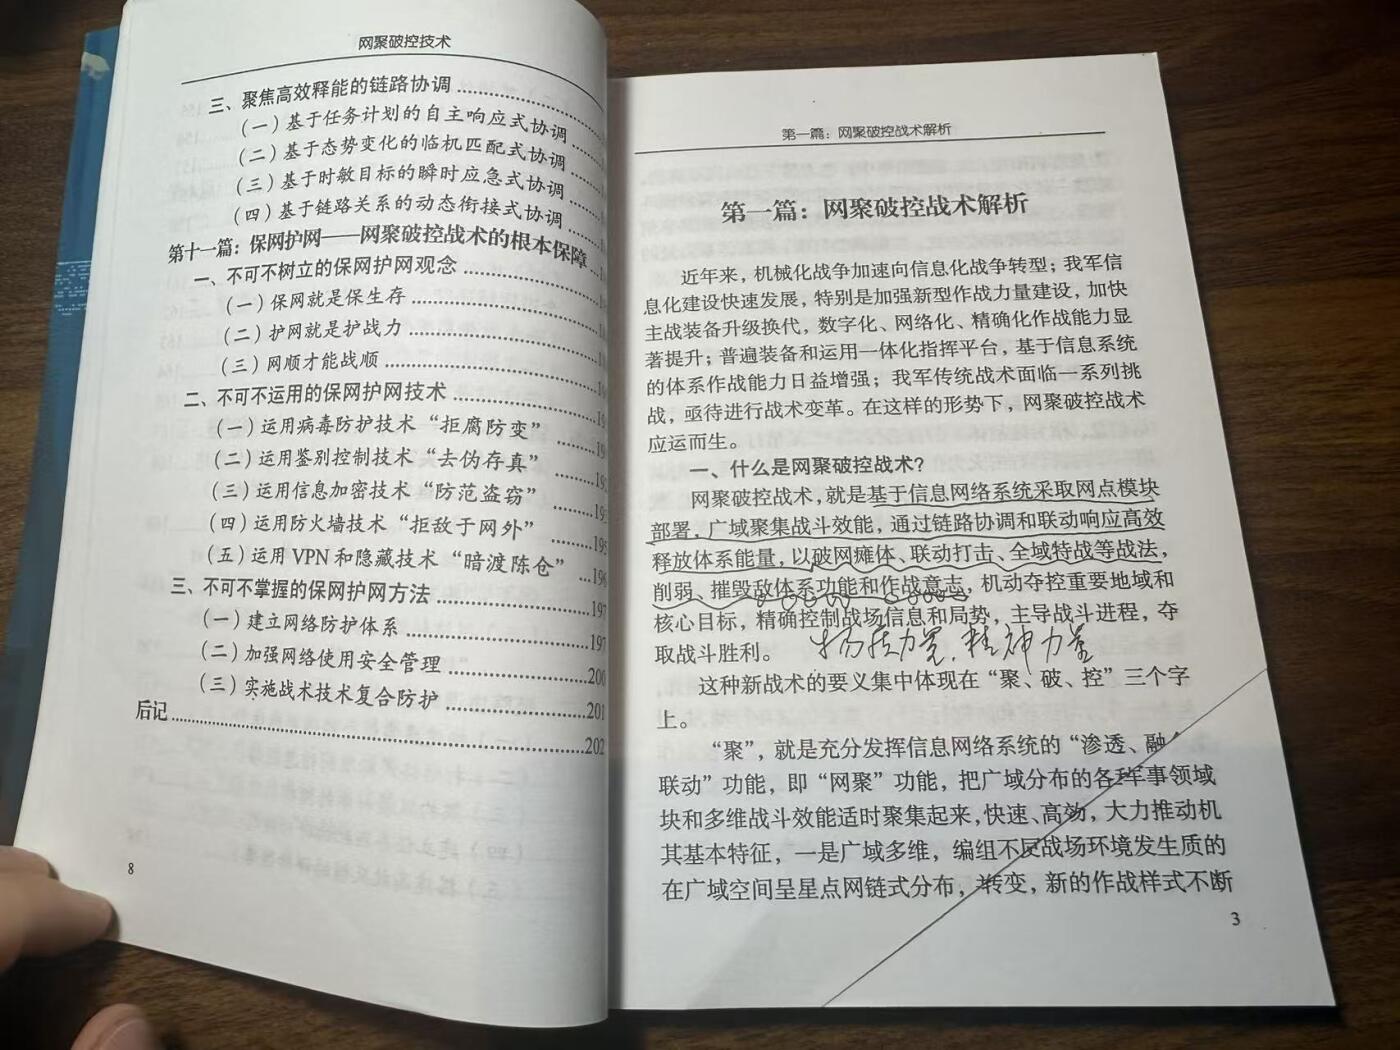 网聚破控技术
三、聚焦高效释能的链路协调
（一）基于任务计划的自主响应式协调
（二）基于态势变化的临机匹配式协调
（三）基于时敏目标的瞬时应急式协调
（四）基于链路关系的动态衔接式协调
第十一篇：保网护网——网聚破控战术的根本保障
一、不可不树立的保网护网观念
（一）保网就是保生存
（二）护网就是护战力
（三）网顺才能战顺
二、不可不运用的保网护网技术
（一）运用病毒防护技术“拒腐防变”
（二）运用鉴别控制技术“去伪存真”
（三）运用信息加密技术“防范盗窃”
（四）运用防火墙技术“拒敌于网外” 195
（五）运用VPN和隐藏技术“暗渡陈仓” 196
三、不可不掌握的保网护网方法 197
（一）建立网络防护体系 197
（二）加强网络使用安全管理 200
（三）实施战术技术复合防护 201
后记 202
8
第一篇：网聚破控战术解析
第一篇：网聚破控战术解析
近年来，机械化战争加速向信息化战争转型；我军信
息化建设快速发展，特别是加强新型作战力量建设，加快
主战装备升级换代，数字化、网络化、精确化作战能力显
著提升；普遍装备和运用一体化指挥平台，基于信息系统
的体系作战能力日益增强；我军传统战术面临一系列挑
战，亟待进行战术变革。在这样的形势下，网聚破控战术
应运而生。
一、什么是网聚破控战术？
网聚破控战术，就是基于信息网络系统采取网点模块
部署，广域聚集战斗效能，通过链路协调和联动响应高效
释放体系能量，以破网瘫体、联动打击、全域特战等战法，
削弱、摧毁敌体系功能和作战意志，机动夺控重要地域和
核心目标，精确控制战场信息和局势，主导战斗进程，夺
取战斗胜利。
精神力量
这种新战术的要义集中体现在“聚、破、控”三个字
上。
“聚”，就是充分发挥信息网络系统的“渗透、融
联动”功能，即“网聚”功能，把广域分布的各种军事领域
块和多维战斗效能适时聚集起来，快速、高效，大力推动机
其基本特征，一是广域多维，编组不反战场环境发生质的
在广域空间呈星点网链式分布，转变，新的作战样式不断
3